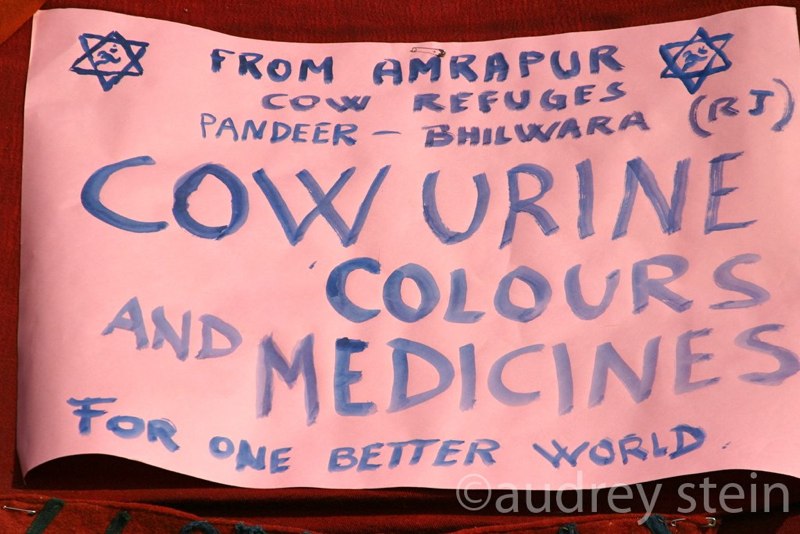 FROM AMRAPUR
COW REFUGES
PANDEER - BHILWARA (RJ)
COW URINE
COLOURS
AND MEDICINES
FOR ONE BETTER WORLD
©audrey stein